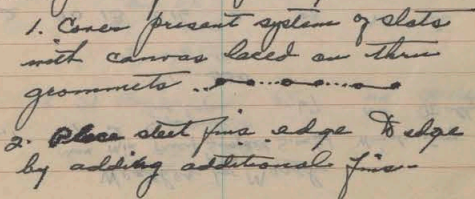 1. Cover present system of slats
with canvas laced on thru
grommets
2. Place steel fins edge to edge
by adding additional fins.